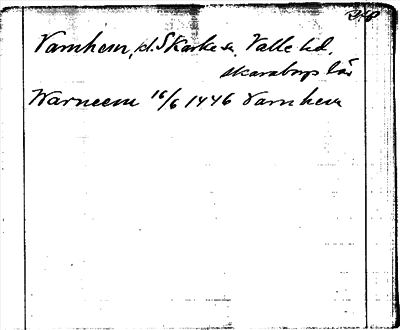 Varnhem, kl. Skarke sn. Valle hd.
Skaraborgs län
Warneem 16/6 1446 Varnhem